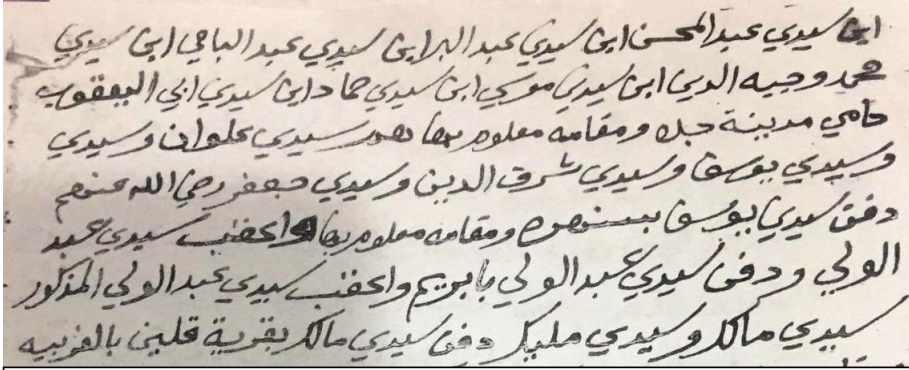 ابن سيدي عبد المحسن ابن سيدي عبد البر ابن سيدي عبد الباقي ابن سيدي
محمد وجيه الدين ابن سيدي موسي ابن سيدي حماد ابن سيدي ابي اليعقوب
حامي مدينة جده ومقامه معلوم بها هو وسيدي علوان وسيدي
وسيدي يوسف وسيدي شرف الدين وسيدي جعفر رضي الله عنهم
دفن سيدي يوسف بسنهوره ومقامه معلوم بها واعقب سيدي عبد
الولي ودفن سيدي عبد الولي بابريم واعقب سيدي عبد الولي المذكور
سيدي مالك وسيدي مليك دفن سيدي مالك بقرية قلين بالغربيه